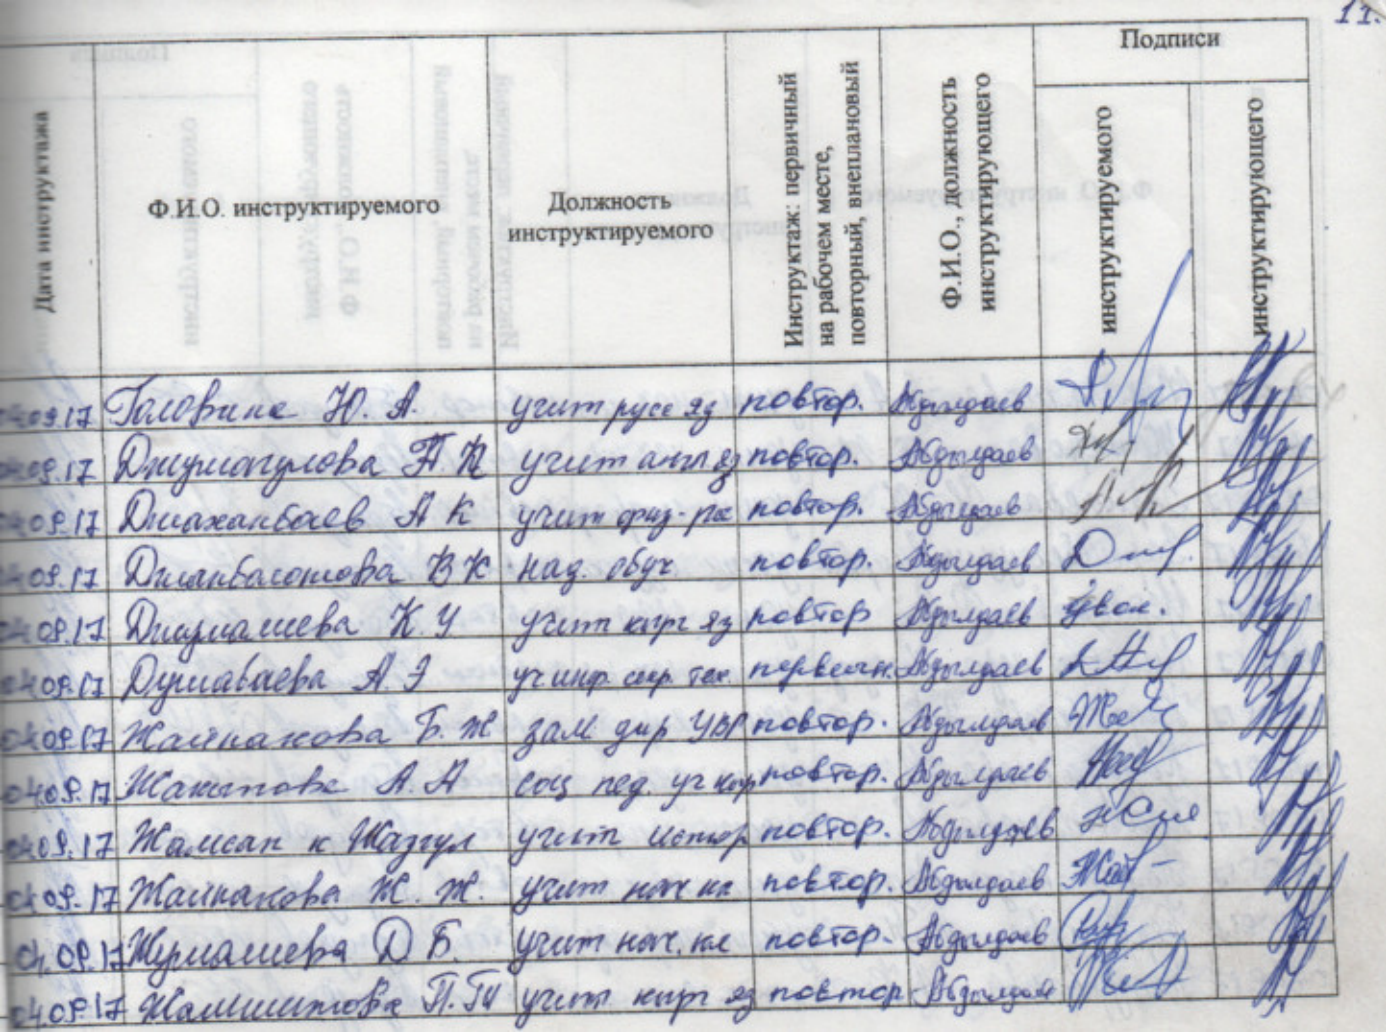 11.
Дата инструктажа
Ф.И.О. инструктируемого
Должность
инструктируемого
Инструктаж: первичный
на рабочем месте,
повторный, внеплановый
Ф.И.О., должность
инструктирующего
Подписи
инструктируемого
инструктирующего
04.09.17 Головина Ю. А. учит русс яз повтор. Абдылдаев
04.09.17 Джумагулова учит англ яз повтор. Абдылдаев
04.09.17 Джаханбаев А К учит физ-ры повтор. Абдылдаев
04.09.17 В К над. обуч повтор. Абдылдаев
04.09.17 Джумалиева К. У. учит кырг яз повтор Абдылдаев
04.09.17 Душабаева А. Э уч инф. секр. тех. первичн. Абдылдаев
04.09.17 Жайнакова Б. Ж зам дир УВР повтор. Абдылдаев
04.09.17 Жакыпова А. А соц пед. уч кырг повтор. Абдылдаев
04.09.17 к Жазгул учит истор повтор. Абдылдаев
04.09.17 Жайнакова Ж. Ж. учит нач кл повтор. Абдылдаев
04.09.17 Жумалиева Д Б. учит нач. кл повтор. Абдылдаев
04.09.17 учит кырг яз повтор Абдылдаев